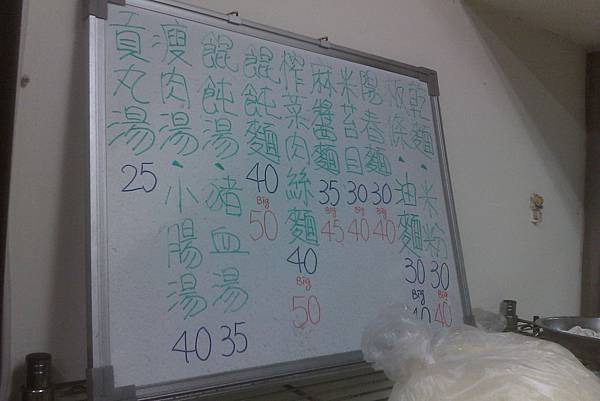 乾麵、米粉 30 Big 40
條、油麵 30 Big
陽春麵 30 Big 40
米苔目 30 Big 40
麻醬麵 35 Big 45
榨菜肉絲麵 40 Big 50
餛飩麵 40 Big 50
餛飩湯、豬血湯 35
瘦肉湯、小腸湯 40
貢丸湯 25